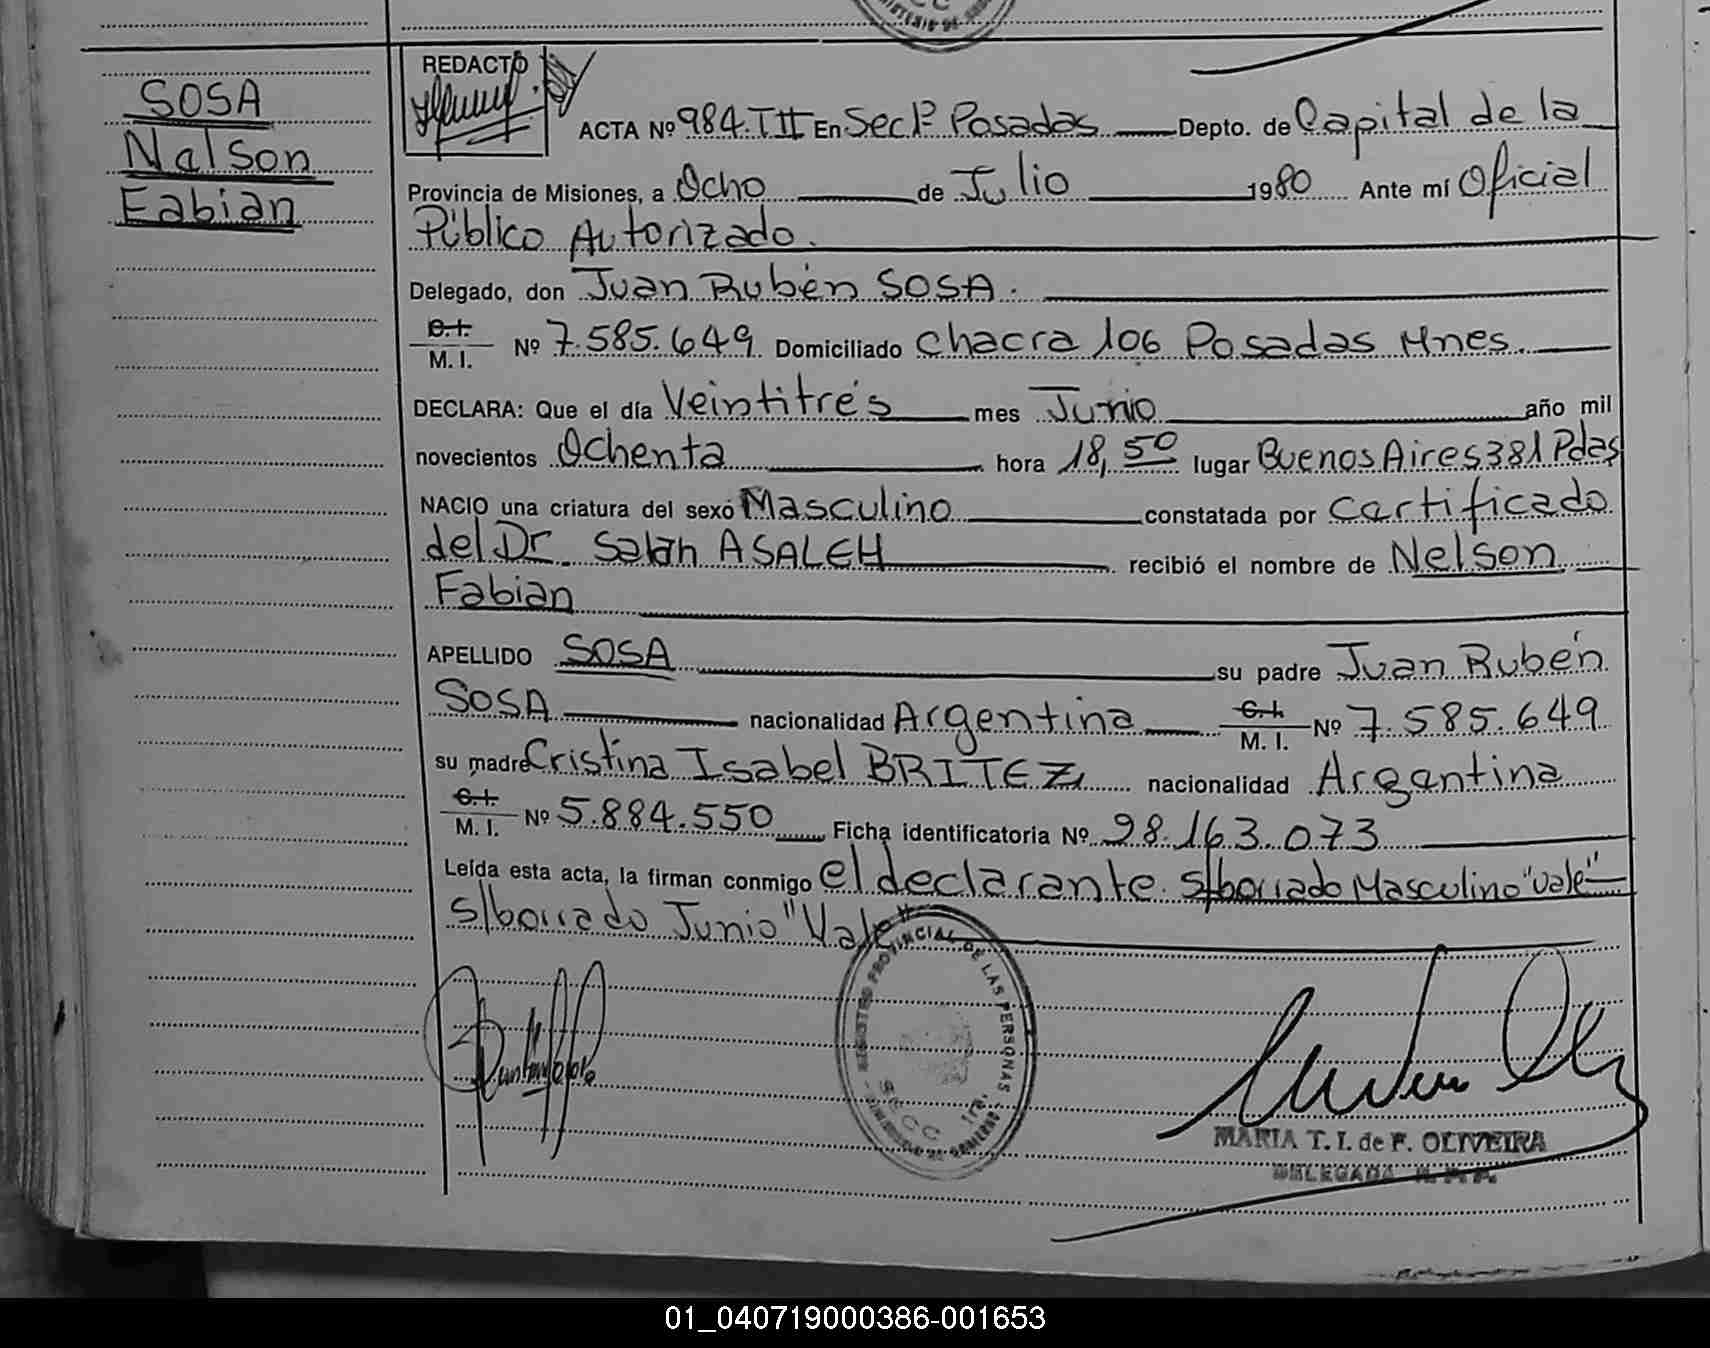 SOSA
Nelson
Fabian
REDACTO
ACTA Nº 984.TII En Secc 1ª Posadas Depto. de Capital de la
Provincia de Misiones, a Ocho de Julio 1980 Ante mí Oficial
Público Autorizado.
Delegado, don Juan Rubén SOSA.
C.I. M.I. Nº 7.585.649 Domiciliado Chacra 106 Posadas Mnes.
DECLARA: Que el día Veintitrés mes Junio año mil
novecientos Ochenta hora 18,50 lugar Buenos Aires 381 Pdas
NACIO una criatura del sexo Masculino constatada por Certificado
del Dr. Salah ASALEH recibió el nombre de Nelson
Fabian
APELLIDO SOSA su padre Juan Rubén
SOSA nacionalidad Argentina C.I. M.I. Nº 7.585.649
su madre Cristina Isabel BRITEZ nacionalidad Argentina
C.I. M.I. Nº 5.884.550 Ficha identificatoria Nº 28.163.073
Leída esta acta, la firman conmigo el declarante. S/borrado Masculino "Vale"
S/borrado Junio "Vale"
REGISTRO PROVINCIAL DE LAS PERSONAS
SECC 1ra.
MARIA T. I. de F. OLIVEIRA
DELEGADA
01_040719000386-001653